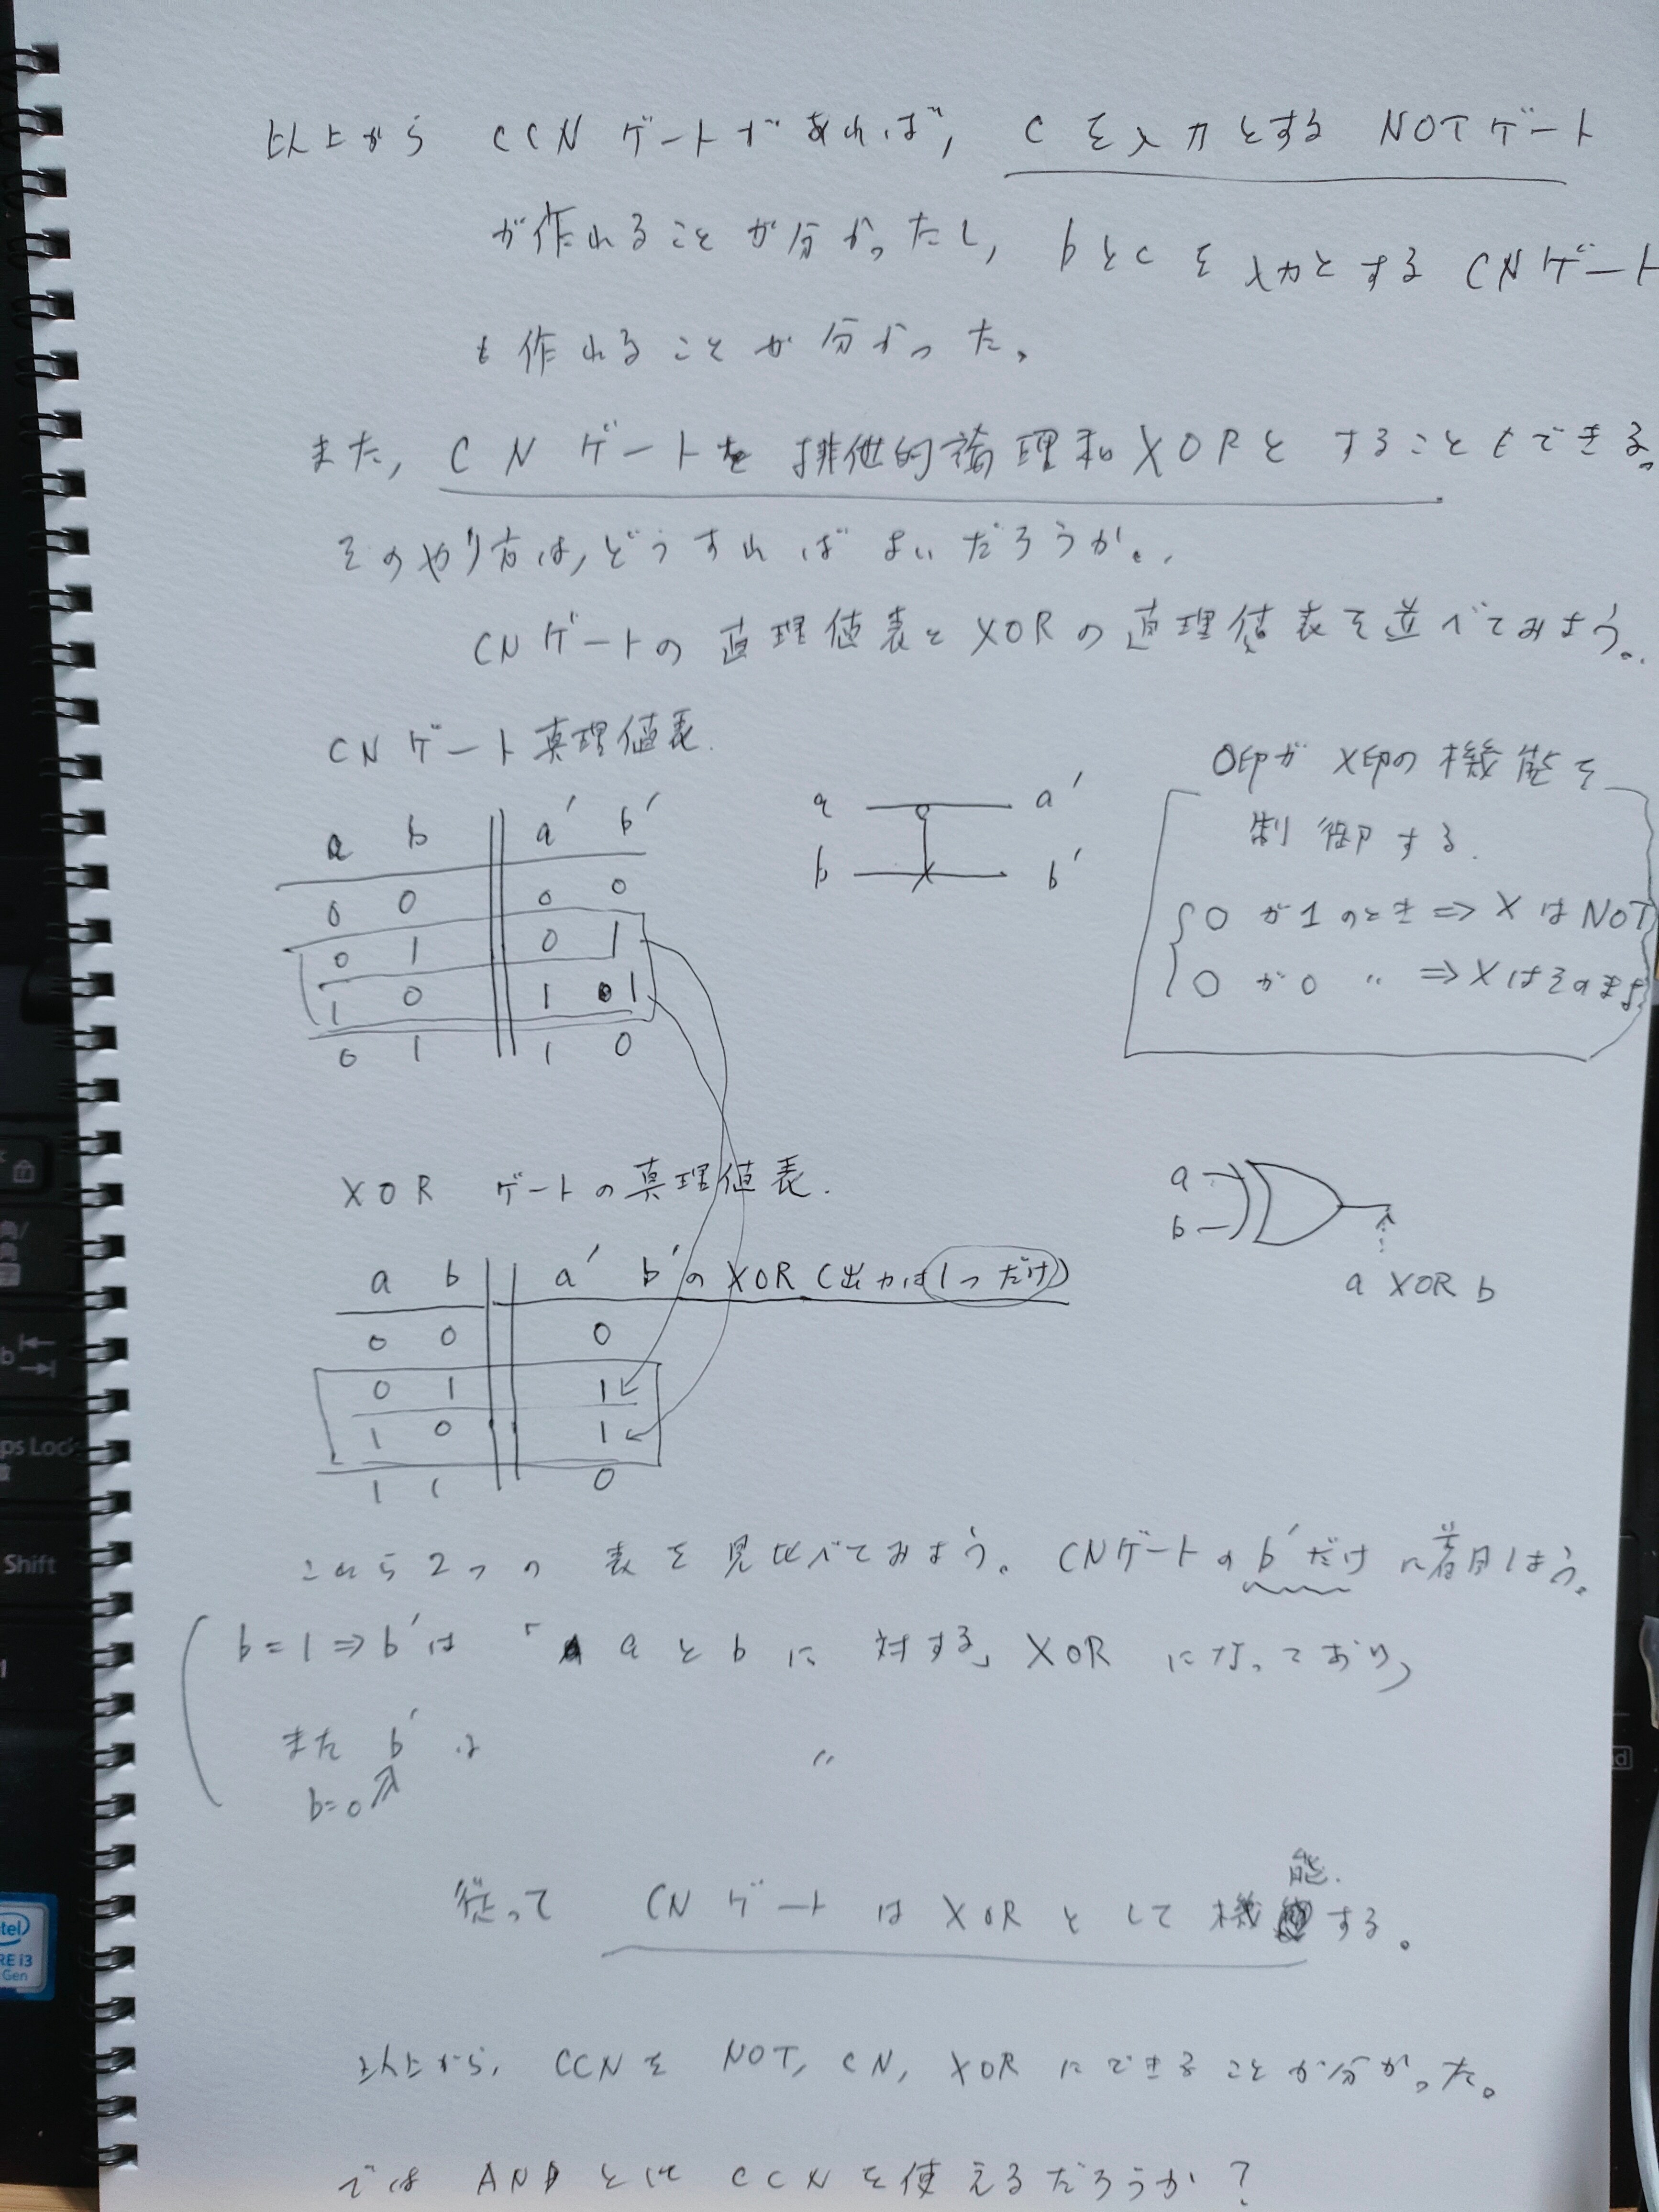 以上から CCN ゲートがあれば, Cを入力とする NOTゲート
が作れることが分かったし, bとcを入力とする CNゲート
も作れることが分かった。
また, CN ゲートを排他的論理和XORとすることもできる。
そのやり方は,どうすればよいだろうか。
CNゲートの真理値表とXORの真理値表を並べてみよう。
CN ゲート真理値表.
a b a' b'
0 0 0 0
0 1 0 1
1 0 1 1
0 1 1 0
a a'
b b'
○印が×印の機能を
制御する.
○が1のとき⇒×はNOT
○が0 〃 ⇒×はそのまま
XOR ゲートの真理値表.
a b a' b'のXOR(出力は1つだけ)
0 0 0
0 1 1
1 0 1
1 1 0
a
b
a XOR b
これら2つの表を見比べてみよう。CNゲートのb'だけに着目しよう。
b=1⇒b'は「aとbに対する」XORになっており,
また b' は 〃
b=0
従って CN ゲートは XOR として機能する。
以上から, CCNを NOT, CN, XOR にできることが分かった。
では ANDとしてCCNを使えるだろうか?
Shift
ps Lock
b
intel
CORE i3
Gen